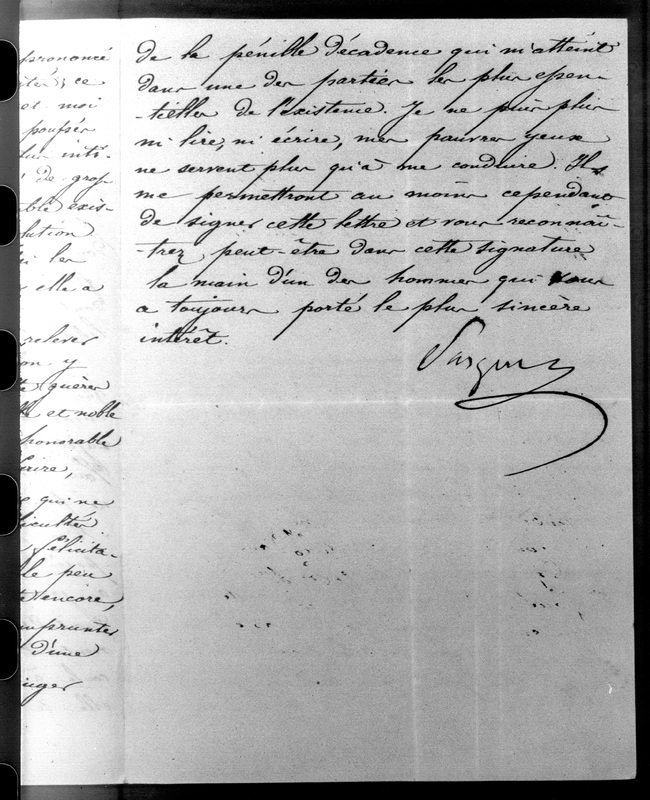 prononcé
ce
et moi
poussés
inti-
de gros
exis-
lution
les
elle a
relever
on y
guères
et noble
honorable
crire,
qui ne
ficultés
félicita-
le peu
encore,
emprunter
d'une
de la pénible décadence qui m'atteint
dans une des parties les plus essen-
-tielles de l'existence. Je ne puis plus
ni lire, ni écrire, mes pauvres yeux
ne servent plus qu'à me conduire. Ils
me permettront au moins cependant
de signer cette lettre et vous reconnaî-
-trez peut-être dans cette signature
la main d'un des hommes qui vous
a toujours porté le plus sincère
intérêt.
Pasquier